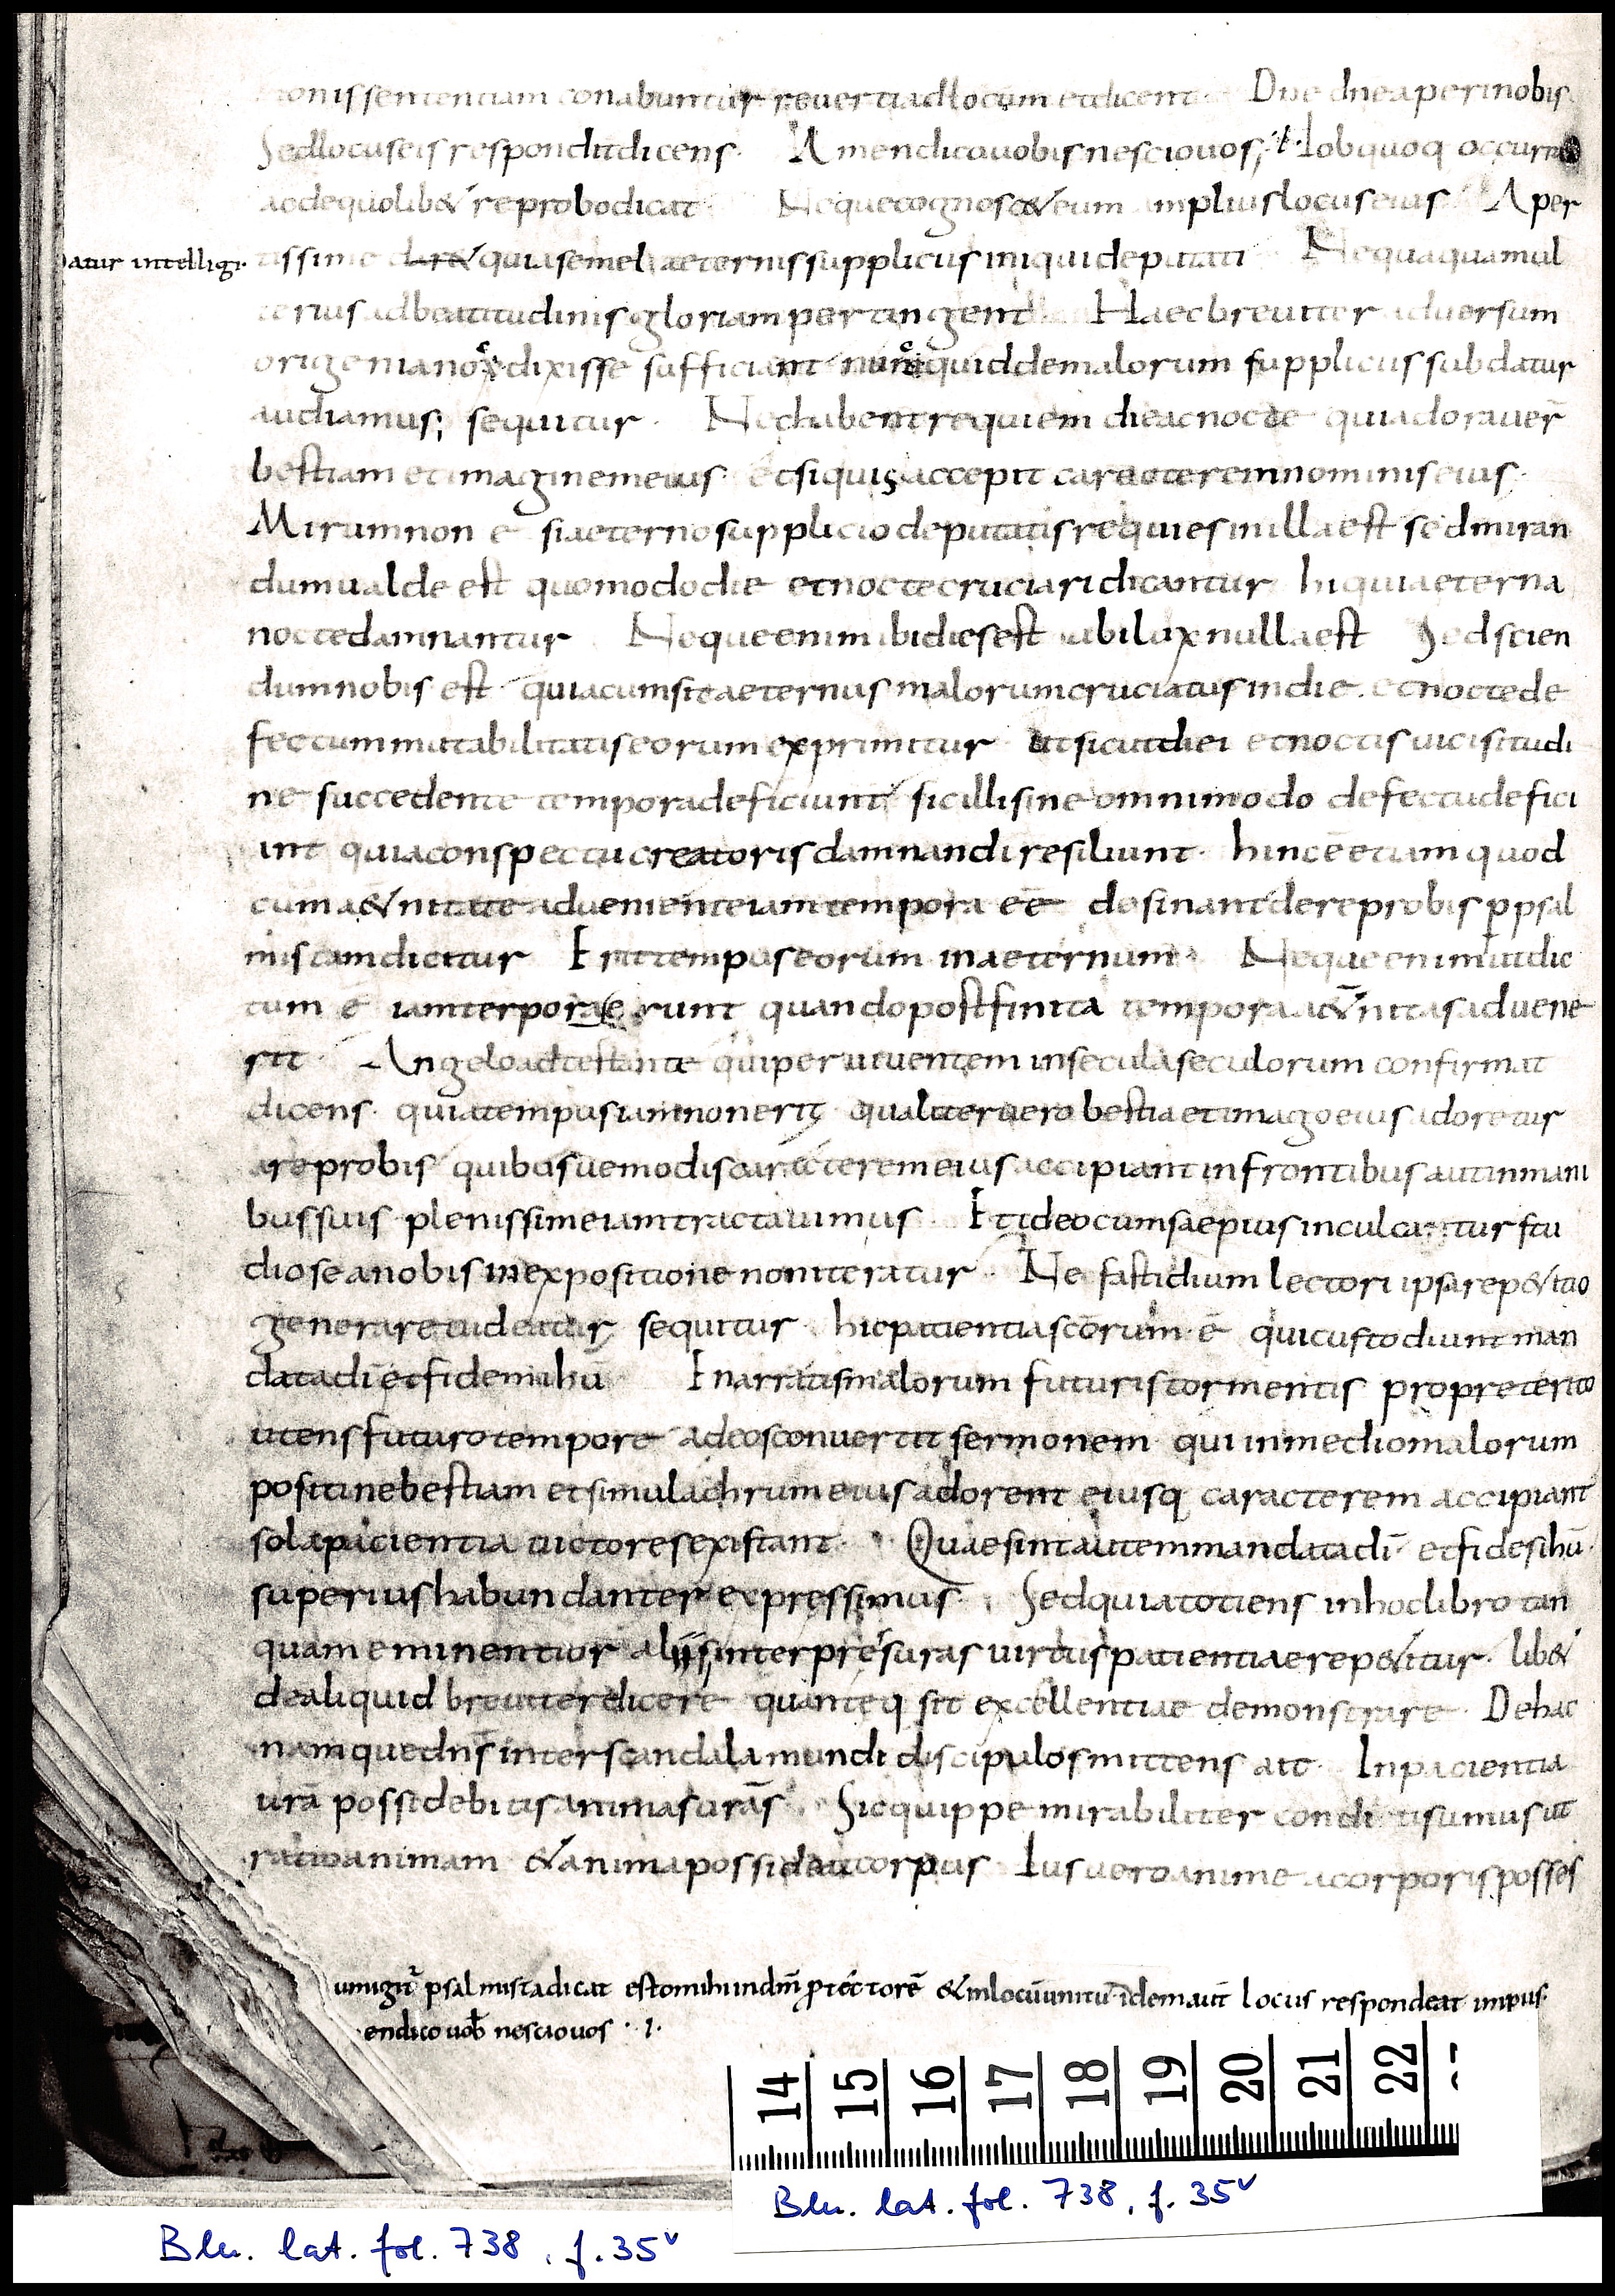 onis sententiam conabuntur reuerti ad locum et dicent Dne dne aperi nobis
Sed locus eis respondit dicens. Amen dico uobis nescio uos, Iob quoq occurr
ac de quolib& reprobo dicat Neque cognosc& eum amplius locus eius Aper
atur intelligi.
tissime quia semel aeternis suppliciis iniqui deputati Nequaquam ul
terius ad beatitudinis gloriam pertingent Haec breuiter aduersum
origenianos dixisse sufficiant nunc quid de malorum suppliciis subdatur
audiamus; sequitur. Nec habent requiem die ac nocte qui adorauer̄
bestiam et imaginem eius. et si quis accepit caracterem nominis eius.
Mirum non ē si aeterno supplicio deputatis requies nulla est sed miran
dum ualde est quomodo die et nocte cruciari dicantur hi qui aeterna
nocte damnantur Neque enim ibi dies est ubi lux nulla est Sed scien
dum nobis est quia cum sit aeternus malorum cruciatus in die et nocte de
fectum mutabilitatis eorum exprimitur ut sicut diei et noctis uicisitudi
ne succedente tempora deficiunt sic illi sine omnimodo defectu defici
int quia conspectu creatoris damnandi resiliunt. hinc ē etiam quod
cum a&nitate adueniente iam tempora eē desinant de reprobis p psal
mistam dicitur Erit tempus eorum in aeternum Neque enim ut dic
tum ē iam tempora erunt quando post finita tempora a&nitas aduene
rit. Angelo adtestante qui per uiuentem in secula seculorum confirmat
dicens. quia tempus iam non erit qualiter uero bestia et imago eius adoretur
a reprobis quibusue modis caracterem eius accipiant in frontibus aut in mani
bus suis plenissime iam tractauimus. Et ideo cum saepius inculcatur stu
diose a nobis in expositione non iteratur. Ne fastidium lectori ipsa rep&itio
generare uideatur sequitur. hic patientia scōrum ē qui custodiunt man
data dī et fidem ihū Enarratis malorum futuris tormentis pro preterito
utens futuro tempore ad eos conuertit sermonem qui in medio malorum
positi ne bestiam et simulachrum eius adorent eiusq caracterem accipiant
sola pacientia uictores existant. Quae sint autem mandata dī et fides ihū.
superius habundanter expressimus. Sed quia totiens in hoc libro tan
quam eminentior aliis inter presuras uirtus patientiae rep&itur. lib&
de a aliquid breuiter dicere quanteq sit excellentiae demonstrare. De hac
namque dn̄s inter scandala mundi discipulos mittens ait. In pacientia
urā possidebitis animas urās Sic quippe mirabiliter conditi sumus ut
ratio animam & anima possideat corpus Ius uero anime a corporis posses
psalmista dicat esto mihi in dm̄ ptectorē & in locū munitū idem aut̄ locus respondeat impiis.
en dico uob̄ nescio uos
14 15 16 17 18 19 20 21 22
Bln. lat. fol. 738, f. 35v
Bln. lat. fol. 738, f. 35v